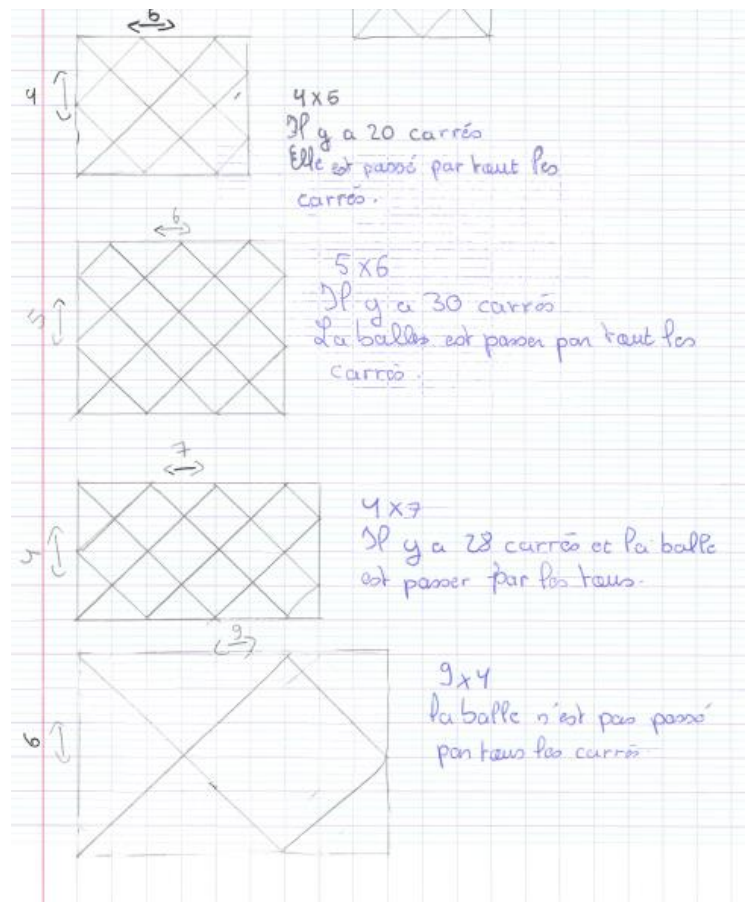 5
4
4x5
Il y a 20 carrés
Elle est passé par tout les
carrés.
6
5
5x6
Il y a 30 carrés
La balles est passer par tout les
carrés.
7
4x7
Il y a 28 carrés et la balle
est passer par les tous.
9
6
9x4
la balle n'est pas passé
par tous les carrés